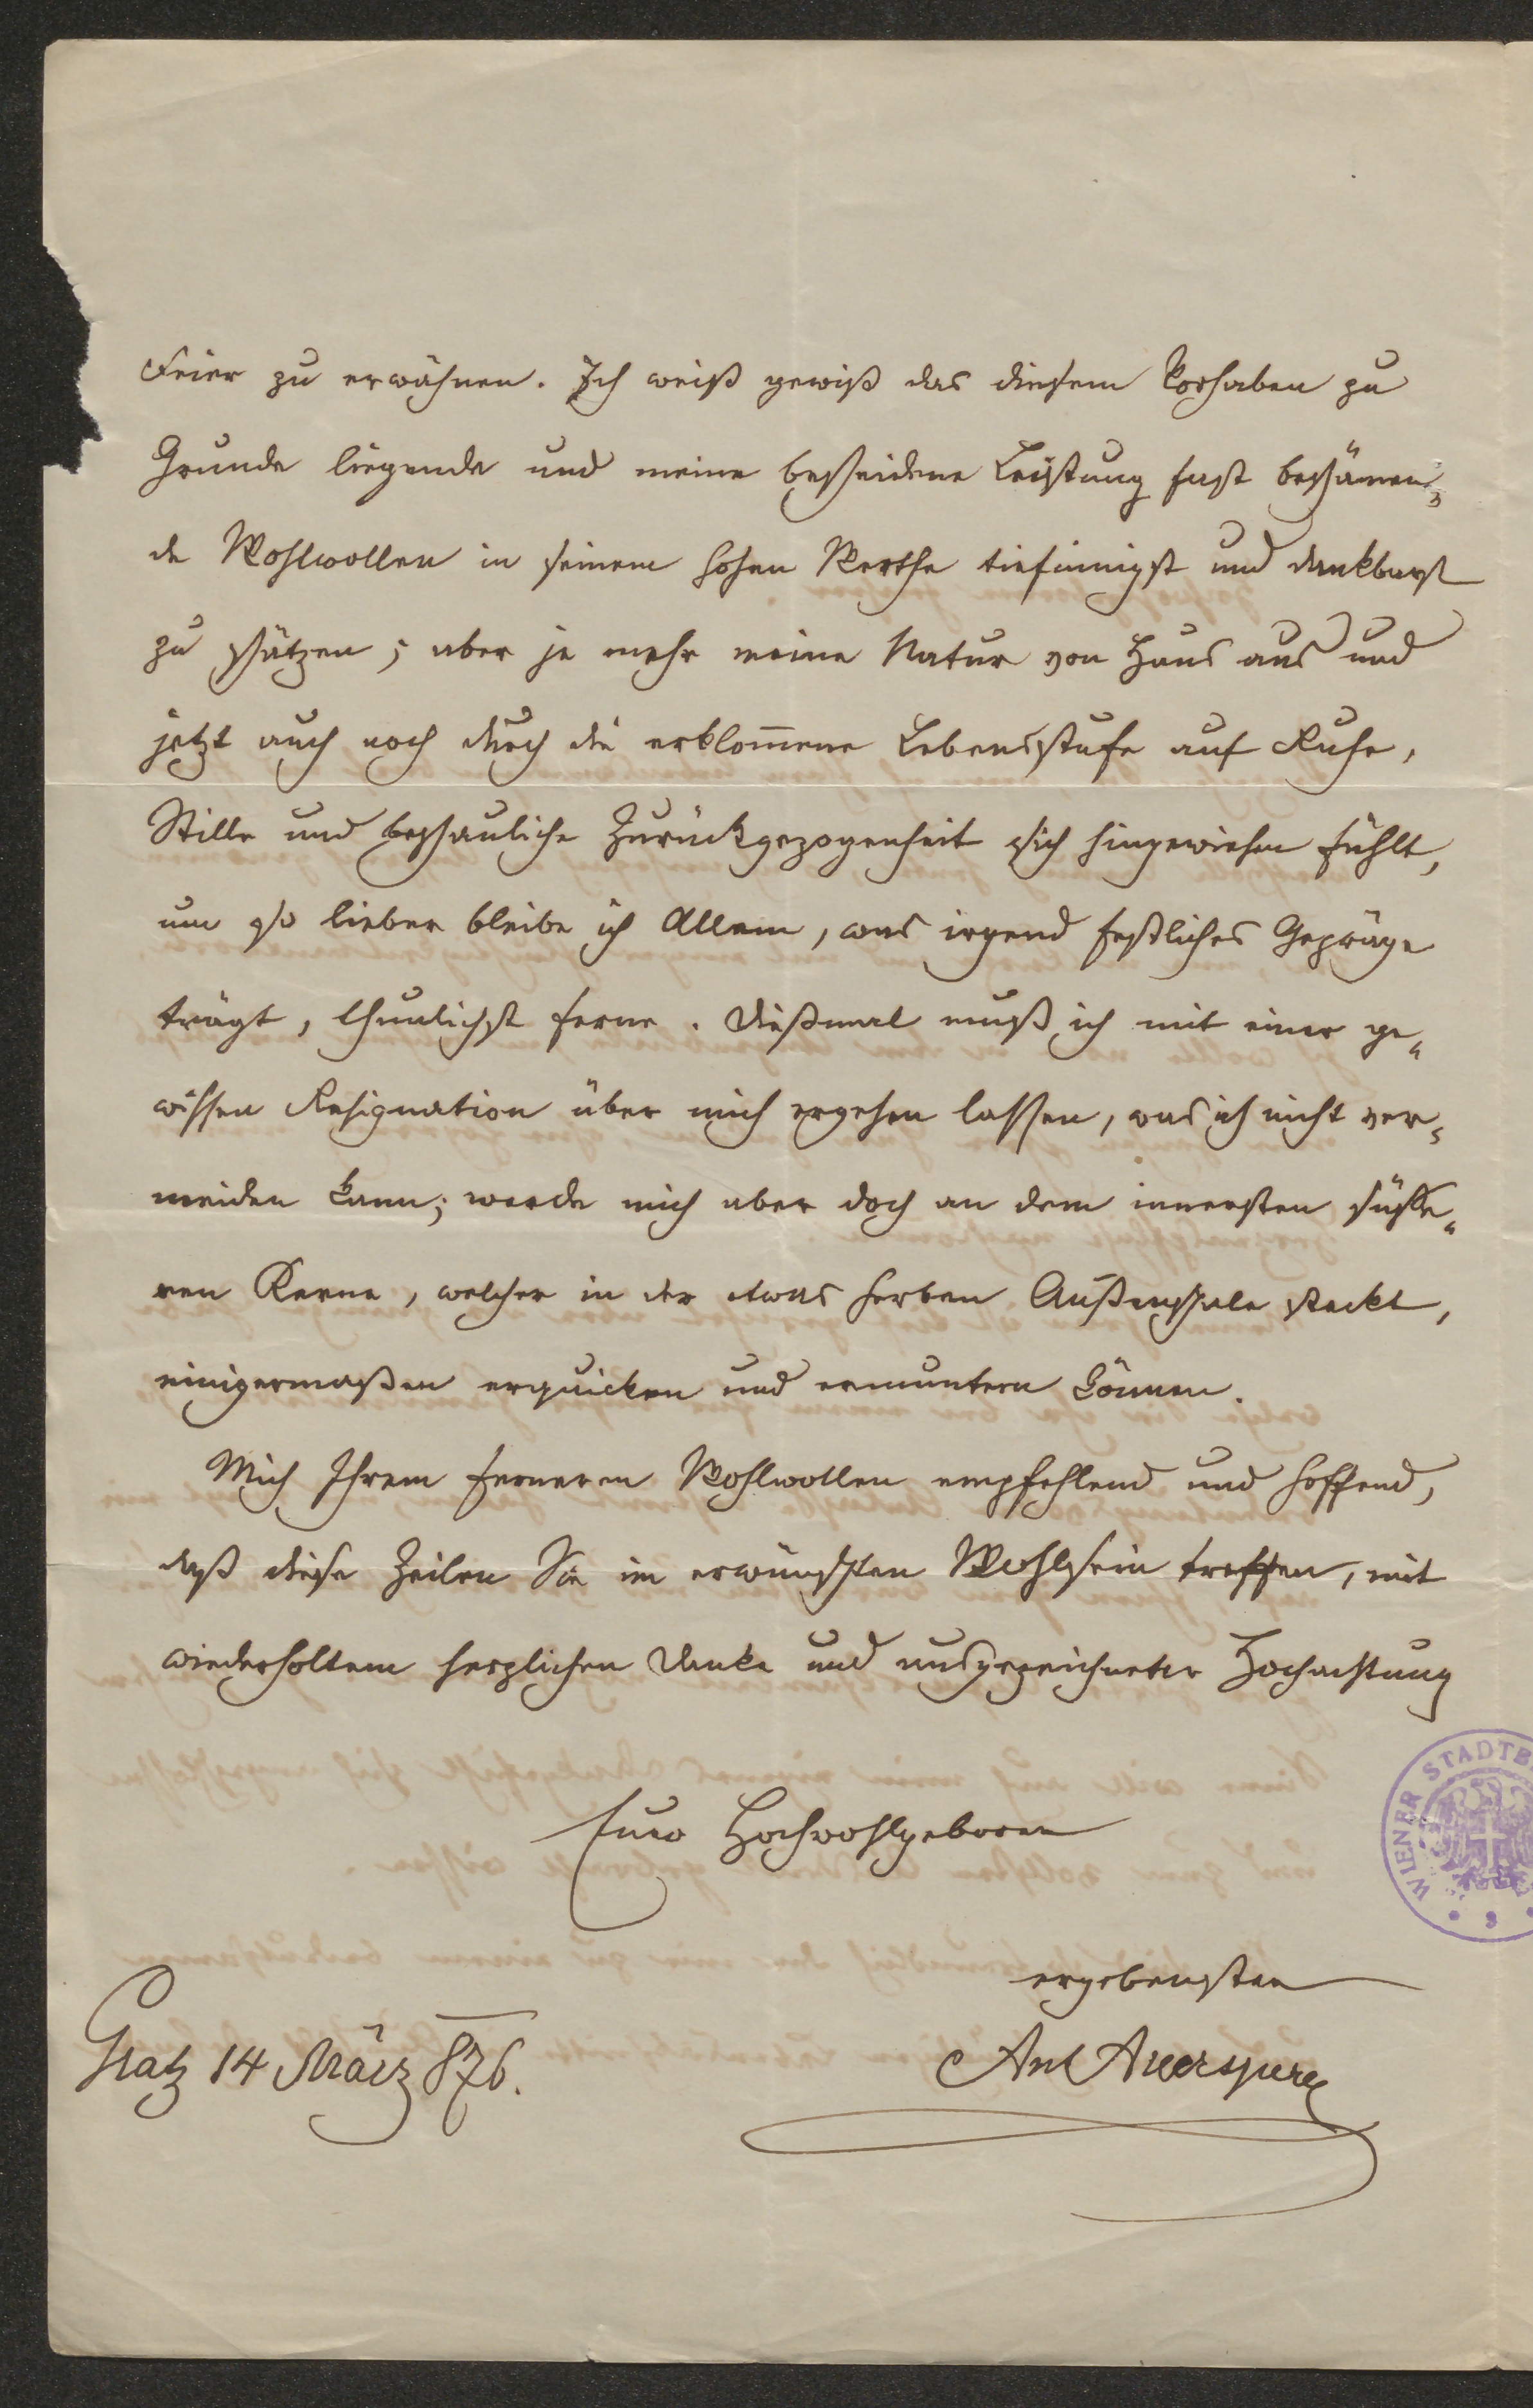 Feier zu erwähnen. Ich weiß gewiß das diesem Vorhaben zu
Grunde liegende und meine bescheidene Leistung fast beschämen-
de Wohlwollen in seinem hohen Werthe tiefinnigst und dankbarst
zu schätzen; aber je mehr meine Natur von Haus aus und
jetzt auch noch durch die erklom̅ene Lebensstufe auf Ruhe,
Stille und beschauliche Zurückgezogenheit sich hingewiesen fühlt,
um so lieber bleibe ich Allem, was irgend festliches Gepräge
trägt, thunlichst ferne. Dießmal muß ich mit einer ge-
wissen Resignation über mich ergehen lassen, was ich nicht ver-
meiden kann; werde mich aber doch an dem innersten süße-
ren Kerne, welcher in der etwas herben Außenschale steckt,
einigermaßen erquicken und ermuntern können.
Mich Ihrem ferneren Wohlwollen empfehlend und hoffend,
daß diese Zeilen Sie im erwünschten Wohlsein treffen, mit
wiederholtem herzlichen Danke und ausgezeichneter Hochachtung
Euer Hochwohlgeboren
ergebensten
Gratz 14 März 876.
Ant Auersperg
WIENER STADTB